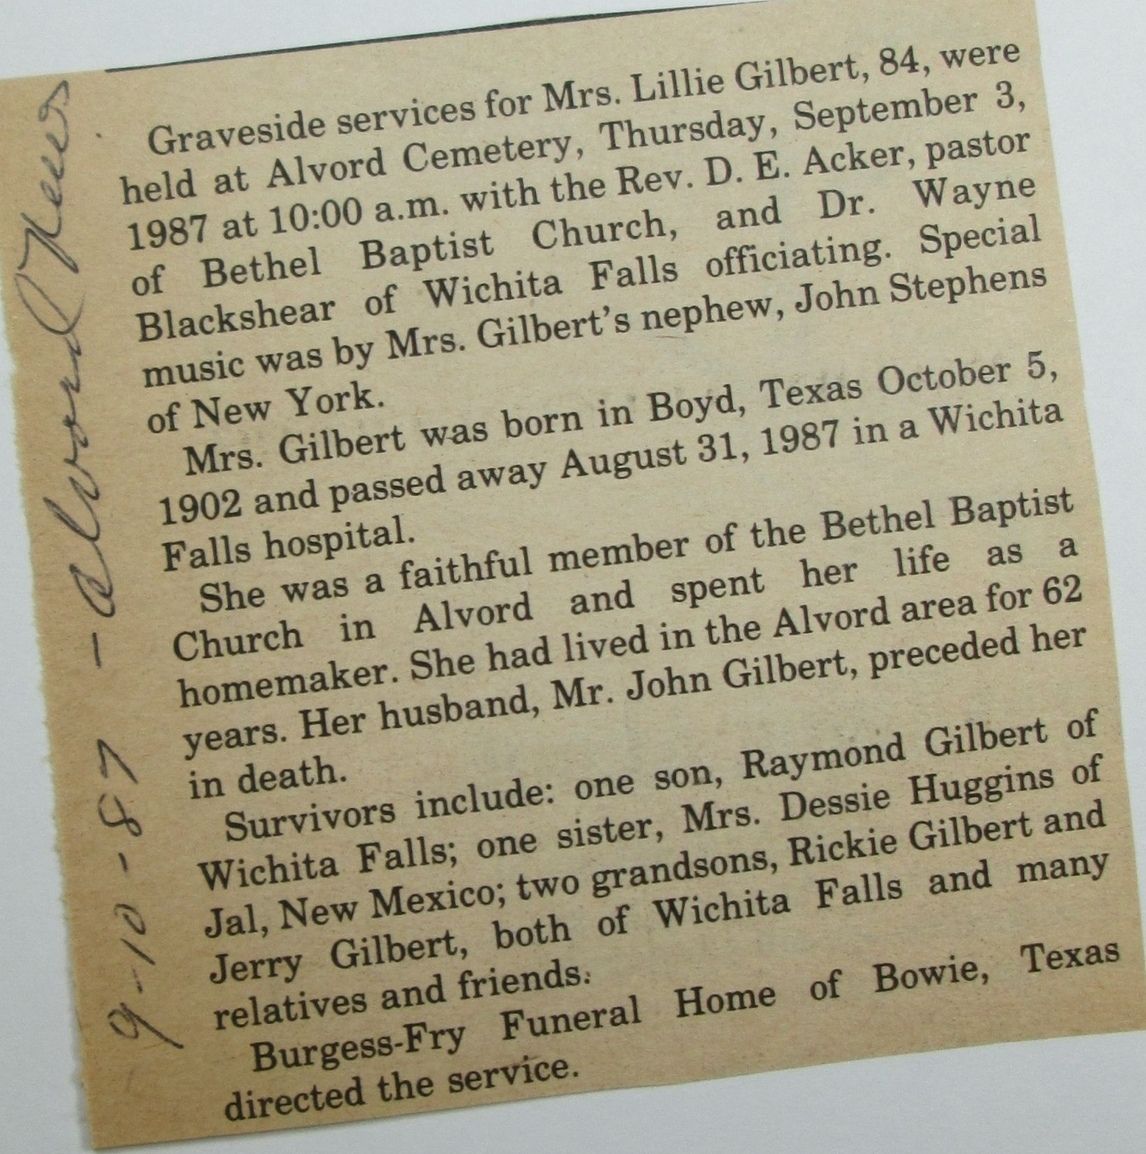 9-10-87 - Alvord News
Graveside services for Mrs. Lillie Gilbert, 84, were
held at Alvord Cemetery, Thursday, September 3,
1987 at 10:00 a.m. with the Rev. D. E. Acker, pastor
of Bethel Baptist Church, and Dr. Wayne
Blackshear of Wichita Falls officiating. Special
music was by Mrs. Gilbert's nephew, John Stephens
of New York.
Mrs. Gilbert was born in Boyd, Texas October 5,
1902 and passed away August 31, 1987 in a Wichita
Falls hospital.
She was a faithful member of the Bethel Baptist
Church in Alvord and spent her life as a
homemaker. She had lived in the Alvord area for 62
years. Her husband, Mr. John Gilbert, preceded her
in death.
Survivors include: one son, Raymond Gilbert of
Wichita Falls; one sister, Mrs. Dessie Huggins of
Jal, New Mexico; two grandsons, Rickie Gilbert and
Jerry Gilbert, both of Wichita Falls and many
relatives and friends.
Burgess-Fry Funeral Home of Bowie, Texas
directed the service.